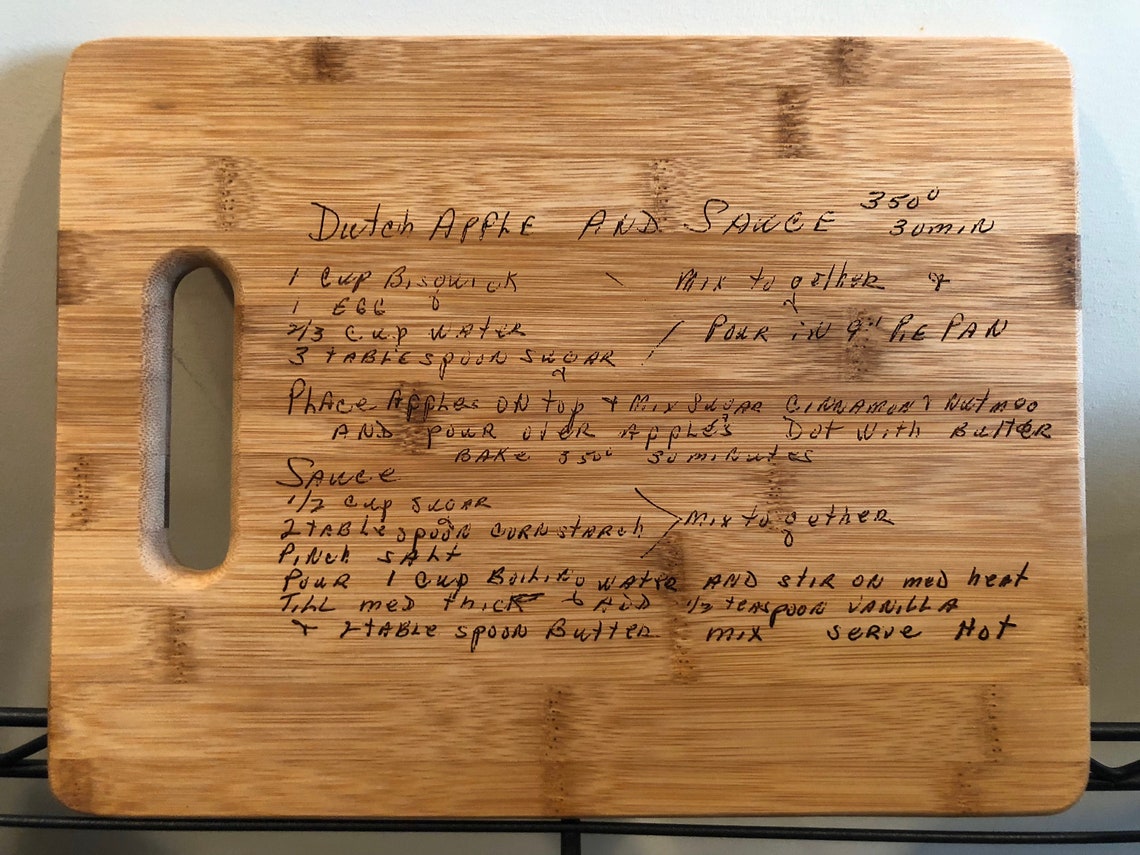 Dutch Apple AND SAUCE 350° 30 min
1 Cup Bisquick \ Mix together &
1 EGG
2/3 Cup water / Pour in 9" Pie Pan
3 tablespoon sugar
Place Apples on top & mix sugar cinnamon & nutmeg
AND pour over apples Dot with Butter
BAKE 350° 30 minutes
SAUCE
1/2 Cup sugar
2 tablespoon cornstarch > Mix together
Pinch salt
Pour 1 cup Boiling water AND stir on med heat
Till med thick & Add 1/2 teaspoon vanilla
& 2 tablespoon Butter mix serve Hot